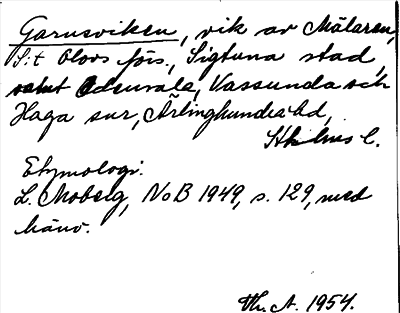 Garnsviken, vik av Mälaren,
S:t Olovs förs., Sigtuna stad,
samt Odensala, Vassunda och
Haga snr, Ärlinghundra hd,
Sthlms l.
Etymologi:
L. Moberg, NoB 1949, s. 129, med
hänv.
Th. A. 1954.